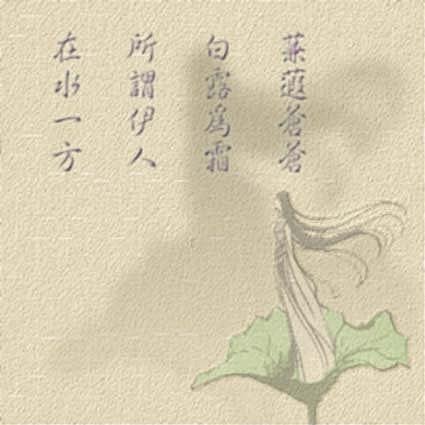 蒹葭蒼蒼
白露為霜
所謂伊人
在水一方